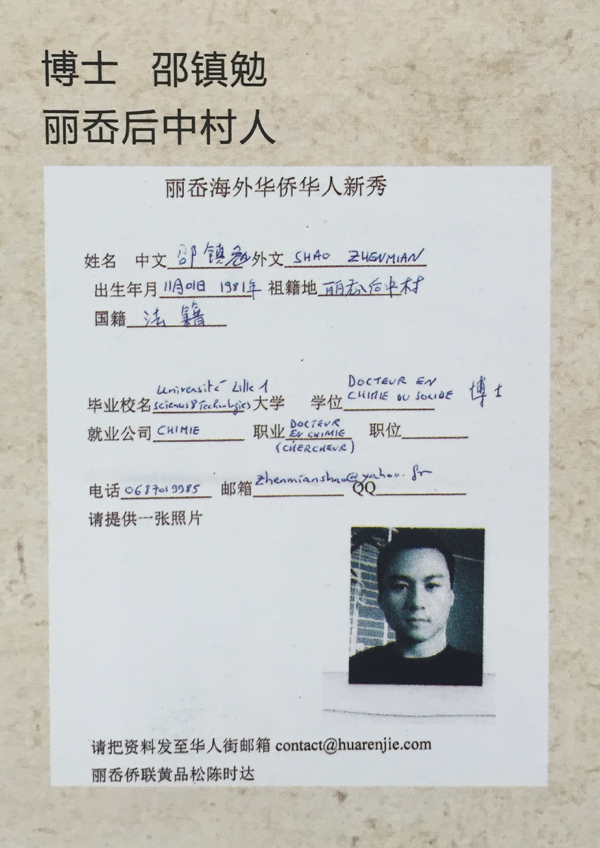 博士 邵镇勉
丽岙后中村人
丽岙海外华侨华人新秀
姓名 中文 邵镇勉 外文 SHAO ZHENMIAN
出生年月 11月01日 1981年 祖籍地 丽岙后中村
国籍 法籍
毕业校名 Université Lille 1 Sciences & Technologies 大学 学位 DOCTEUR EN CHIMIE DU SOLIDE 博士
就业公司 CHIMIE 职业 DOCTEUR EN CHIMIE (CHERCHEUR) 职位
电话 0687019985 邮箱 zhenmianshao@yahoo.fr QQ
请提供一张照片
请把资料发至华人街邮箱 contact@huarenjie.com
丽岙侨联黄品松陈时达